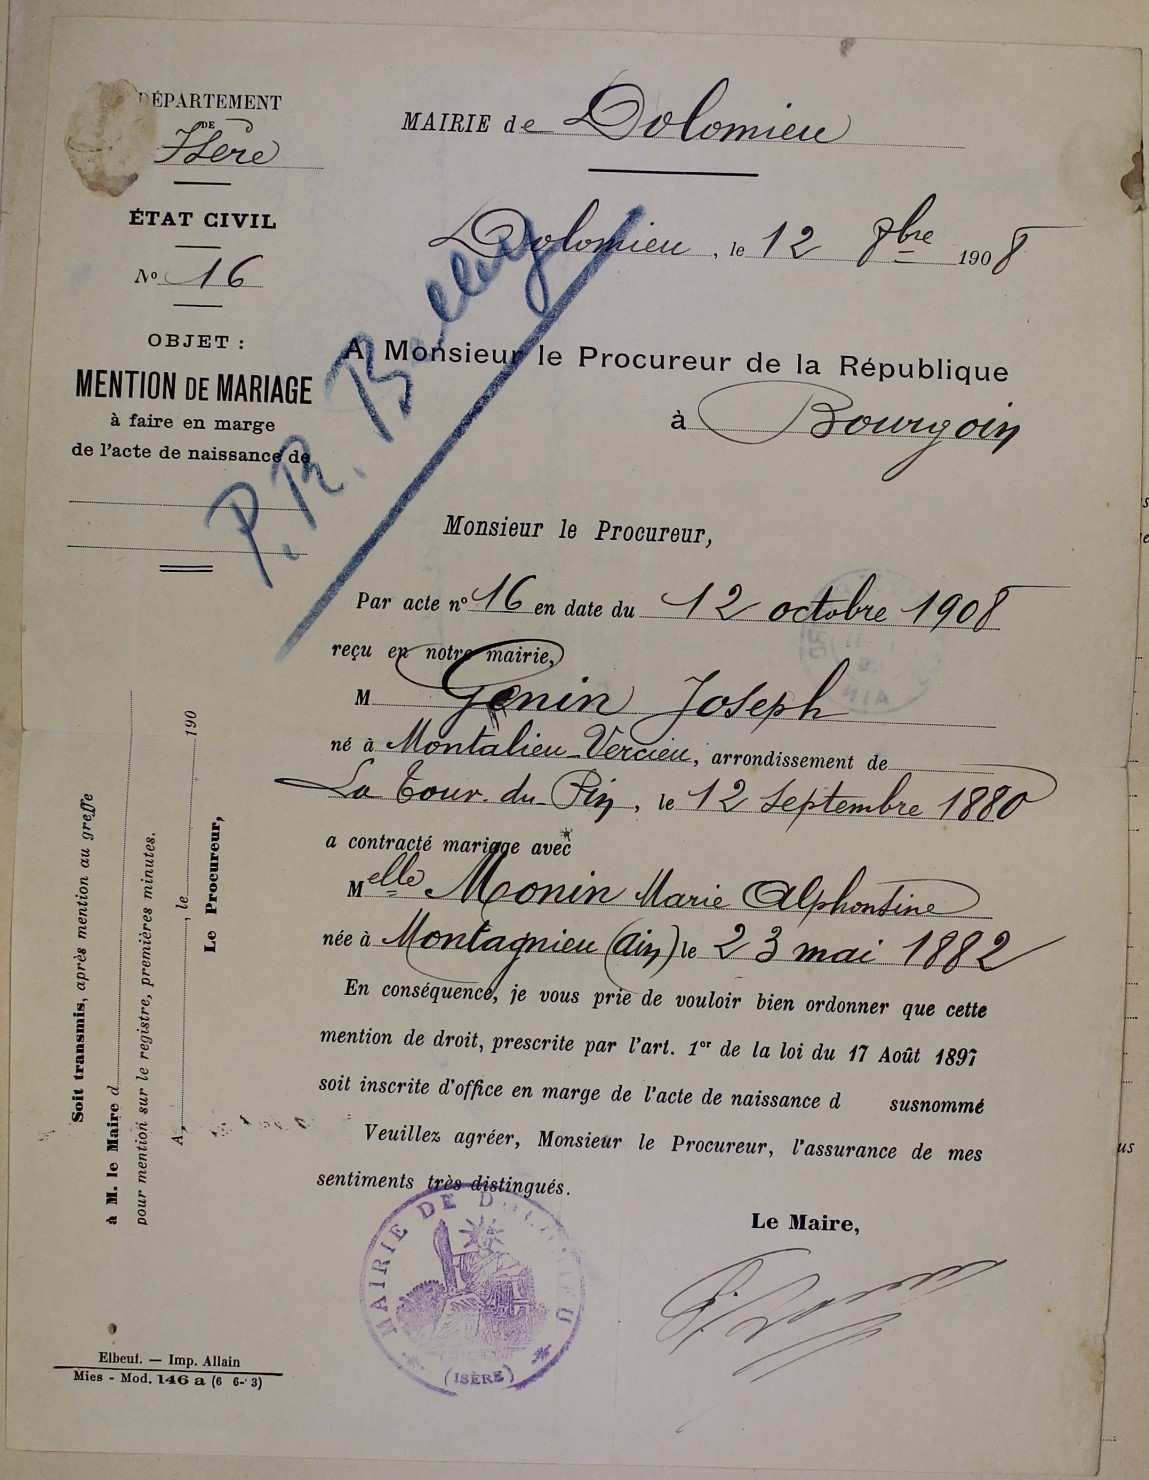 DÉPARTEMENT
DE
Isère
ÉTAT CIVIL
No 16
OBJET :
MENTION DE MARIAGE
à faire en marge
de l'acte de naissance de
MAIRIE de Dolomieu
Dolomieu, le 12 8bre 1908
P. R. Belley
A Monsieur le Procureur de la République
à Bourgoin
Monsieur le Procureur,
Par acte no 16 en date du 12 octobre 1908
reçu en notre mairie,
M Genin Joseph
né à Montalieu-Vercieu, arrondissement de
La Tour-du-Pin, le 12 septembre 1880
a contracté mariage avec
Melle Monin Marie Alphonsine
née à Montagnieu (Ain) le 23 mai 1882
En conséquence, je vous prie de vouloir bien ordonner que cette
mention de droit, prescrite par l'art. 1er de la loi du 17 Août 1897
soit inscrite d'office en marge de l'acte de naissance d susnommé
Veuillez agréer, Monsieur le Procureur, l'assurance de mes
sentiments très distingués.
Le Maire,
MAIRIE DE DOLOMIEU
(ISÈRE)
Soit transmis, après mention au greffe
à M. le Maire d
pour mention sur le registre, premières minutes.
A , le 190
Le Procureur,
Elbeuf. — Imp. Allain
Mies - Mod. 146 a (6 6- 3)